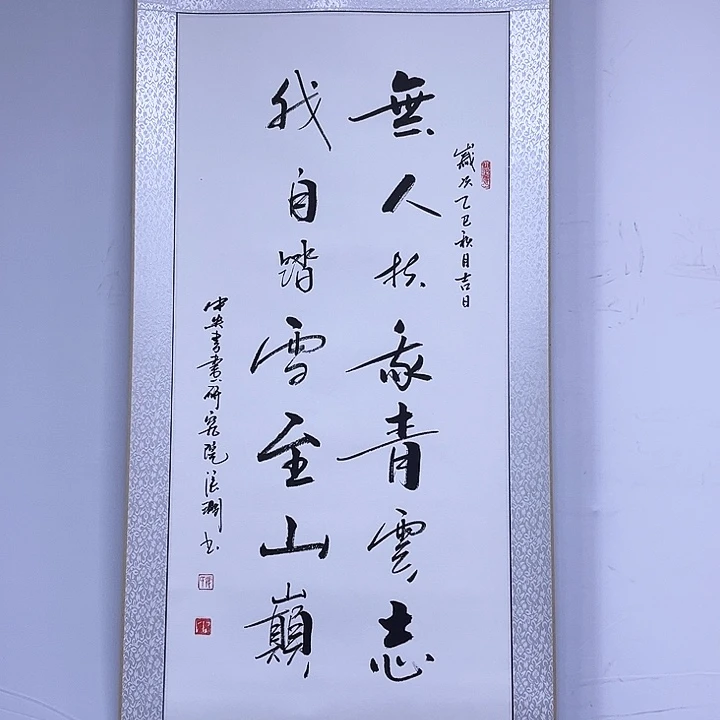 歲次乙巳秋月吉日
無人扶我青雲志
我自踏雪至山巔
中央書畫研究院书